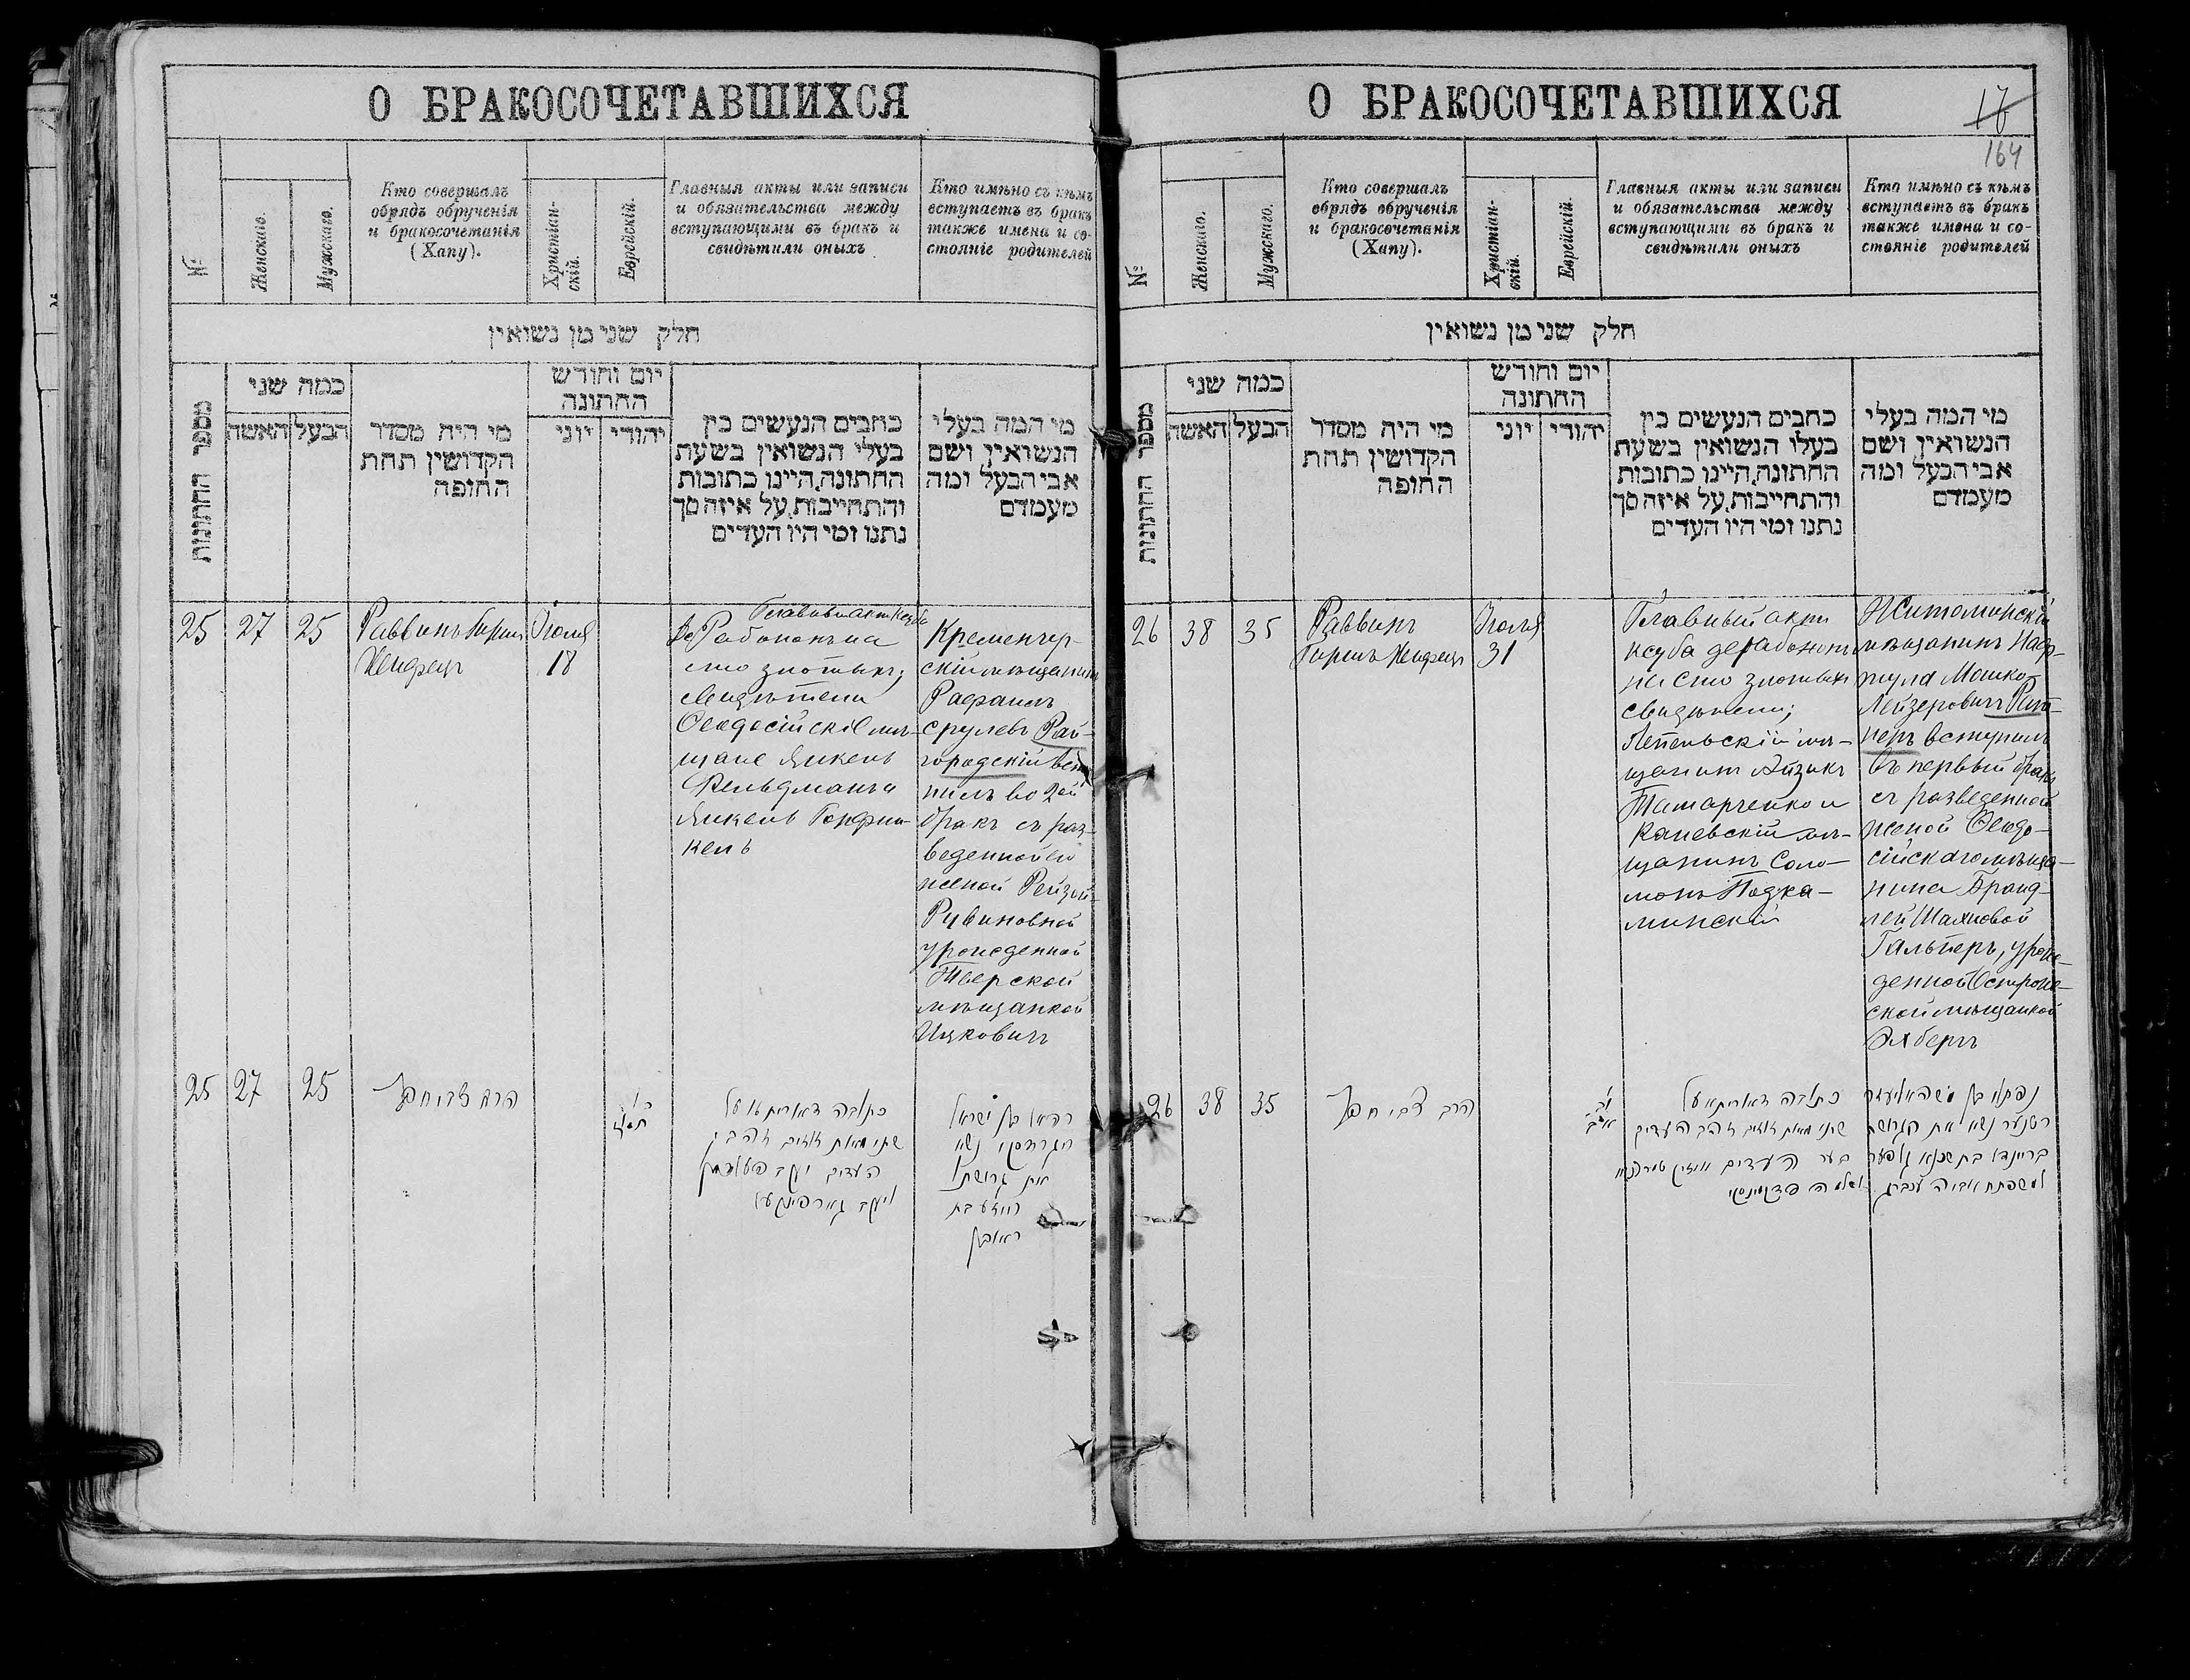 О БРАКОСОЧЕТАВШИХСЯ
№
Женскаго.
Мужскаго.
Кто совершалъ
обрядъ обрученія
и бракосочетанія
(Хапу).
Христіан-
скій.
Еврейскій.
Главныя акты или записи
и обязательства между
вступающими въ бракъ и
свидѣтили оныхъ
Кто имѣно съ кѣмъ
вступаетъ въ бракъ
также имена и со-
стояніе родителей
חלק שני מן נשואין
מספר החתונות
כמה שני
האשה
הבעל
מי היה מסדר
הקדושין תחת
החופה
יום וחודש
החתונה
יוני
יהודי
כתבים הנעשים בין
בעלי הנשואין בשעת
החתונה, היינו כתובות
והתחייבות, על איזה סך
נתנו ומי היו העדים
מי המה בעלי
הנשואין ושם
אבי הבעל ומה
מעמדם
25
27
25
Раввинъ Гиршъ
Хейфецъ
Іюля
18
сто злотыхъ;
свидѣтели
Ѳеодосійскіе мѣ-
щане Янкель
Фельдманъ и
Янкель Гонфин-
кель
Кременчуг-
скій мѣщанинъ
Рафаилъ
Срулевъ Рай-
городскій всту-
пилъ во 2ой
бракъ съ раз-
веденной его
женой Рейзой
Рувиновной
урожденной
Тверской
мѣщанкой
Ицковичъ
25
27
25
הרב צבי חפץ
כתובה דאורייתא על
שתי מאות זוזים זהב
העדים יעקב
ויעקב
רפאל בן ישראל
נשא
את גרושתו
בת
ראובן
О БРАКОСОЧЕТАВШИХСЯ
17
164
№
Женскаго.
Мужскаго.
Кто совершалъ
обрядъ обрученія
и бракосочетанія
(Хапу).
Христіан-
скій.
Еврейскій.
Главныя акты или записи
и обязательства между
вступающими въ бракъ и
свидѣтили оныхъ
Кто имѣно съ кѣмъ
вступаетъ въ бракъ
также имена и со-
стояніе родителей
חלק שני מן נשואין
מספר החתונות
כמה שני
האשה
הבעל
מי היה מסדר
הקדושין תחת
החופה
יום וחודש
החתונה
יוני
יהודי
כתבים הנעשים בין
בעלי הנשואין בשעת
החתונה, היינו כתובות
והתחייבות, על איזה סך
נתנו ומי היו העדים
מי המה בעלי
הנשואין ושם
אבי הבעל ומה
מעמדם
26
38
35
Раввинъ
Гиршъ Хейфецъ
Іюля
31
Главный актъ
ксуба дерабононъ
на сто злотыхъ
свидѣтели;
Лепельскій мѣ-
щанинъ Айзикъ
Татарченко и
Каневскій мѣ-
щанинъ Соло-
монъ Подка-
минскій
Житомирскій
мѣщанинъ Наф-
тула Мошко-
Лейзеровичъ
вступилъ
въ первый бракъ
съ разведенной
женой Ѳеодо-
сійскаго мѣща-
нина Бранд-
лей Шахновой
Гальперъ, урож-
денной Острож-
ской мѣщанкой
26
38
35
הרב צבי חפץ
כתובה דאורייתא על
שתי מאות זוזים זהב העדים
נפתלי בן משה אליעזר
נשא את הגרושת
בת שכנא